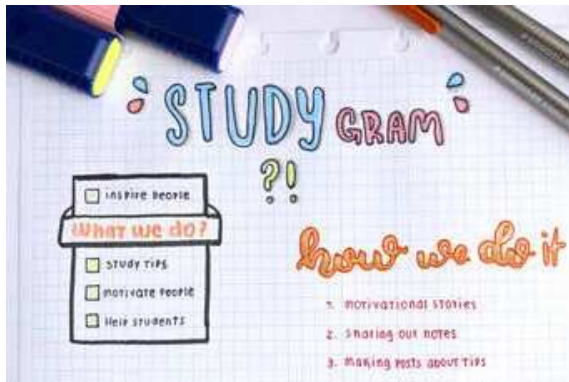 STUDY GRAM
?!
inspire people
What we do?
STUDY TIPS
motivate people
Help students
how we do it
1. motivational stories
2. sharing our notes
3. making posts about tips